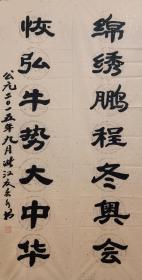 绵绣鹏程冬奥会
恢弘牛势大中华
公元二〇一五年九月